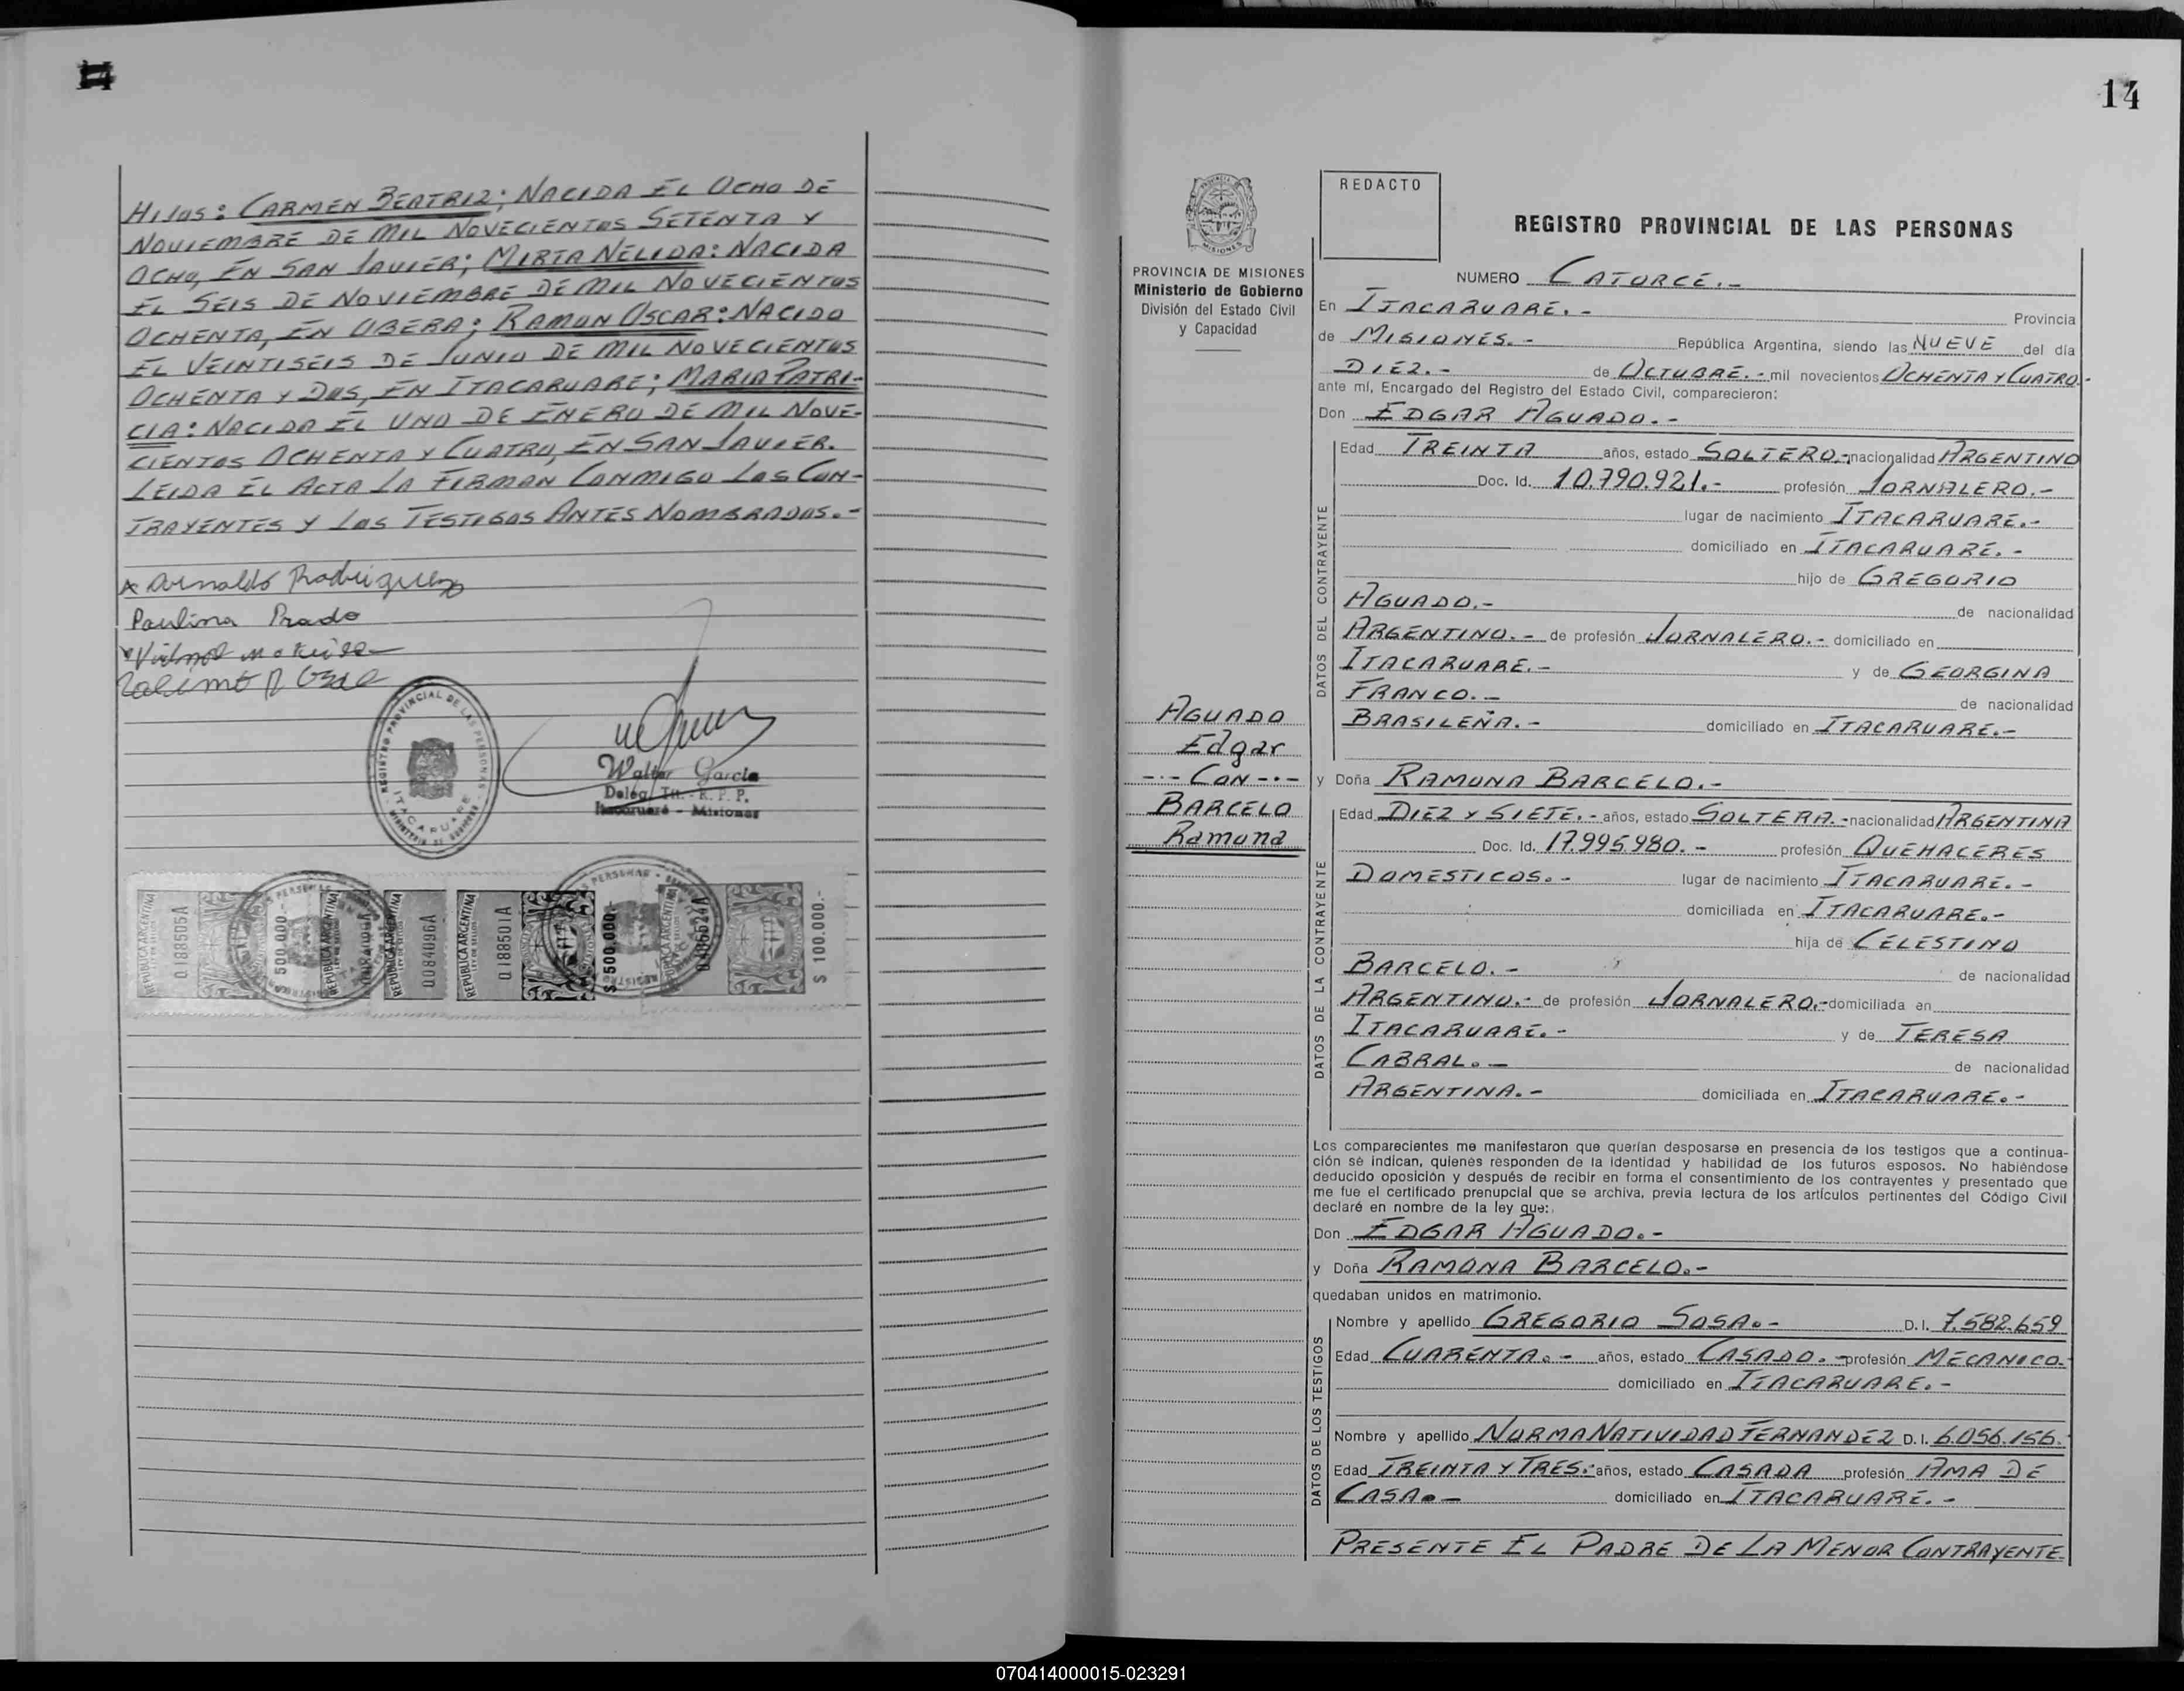 HIJOS: CARMEN BEATRIZ; NACIDA EL OCHO DE
NOVIEMBRE DE MIL NOVECIENTOS SETENTA Y
OCHO, EN SAN JAVIER; MIRTA NELIDA: NACIDA
EL SEIS DE NOVIEMBRE DE MIL NOVECIENTOS
OCHENTA, EN OBERA; RAMON OSCAR: NACIDO
EL VEINTISEIS DE JUNIO DE MIL NOVECIENTOS
OCHENTA Y DOS, EN ITACARUARE; MARIA PATRI-
CIA: NACIDA EL UNO DE ENERO DE MIL NOVE-
CIENTOS OCHENTA Y CUATRO, EN SAN JAVIER.
LEIDA EL ACTA LA FIRMAN CONMIGO LOS CON-
TRAYENTES Y LOS TESTIGOS ANTES NOMBRADOS.-
Arnaldo Rodriguez
Paulina Prado
REGISTRO PROVINCIAL DE LAS PERSONAS
ITACARUARE
Walter Garcia
Deleg. Tit. - R. P. P.
Itacaruaré - Misiones
REPUBLICA ARGENTINA
0188505A
$ 500.000.-
REPUBLICA ARGENTINA
REPUBLICA ARGENTINA
0084096A
REPUBLICA ARGENTINA
0188501A
$ 500.000.-
REPUBLICA ARGENTINA
$ 100.000.-
14
PROVINCIA DE MISIONES
Ministerio de Gobierno
División del Estado Civil
y Capacidad
AGUADO
Edgar
-·- CON -·-
BARCELO
Ramona
REDACTO
REGISTRO PROVINCIAL DE LAS PERSONAS
NUMERO CATORCE.-
En ITACARUARE.- Provincia
de MISIONES.- República Argentina, siendo las NUEVE del día
DIEZ.- de OCTUBRE.- mil novecientos OCHENTA Y CUATRO.-
ante mí, Encargado del Registro del Estado Civil, comparecieron:
Don EDGAR AGUADO.-
DATOS DEL CONTRAYENTE
Edad TREINTA años, estado SOLTERO.- nacionalidad ARGENTINO
Doc. Id. 10.790.921.- profesión JORNALERO.-
lugar de nacimiento ITACARUARE.-
domiciliado en ITACARUARE.-
hijo de GREGORIO
AGUADO.- de nacionalidad
ARGENTINO.- de profesión JORNALERO.- domiciliado en
ITACARUARE.- y de GEORGINA
FRANCO.- de nacionalidad
BRASILEÑA.- domiciliado en ITACARUARE.-
y Doña RAMONA BARCELO.-
DATOS DE LA CONTRAYENTE
Edad DIEZ Y SIETE.- años, estado SOLTERA.- nacionalidad ARGENTINA
Doc. Id. 17.995.980.- profesión QUEHACERES
DOMESTICOS.- lugar de nacimiento ITACARUARE.-
domiciliada en ITACARUARE.-
hija de CELESTINO
BARCELO.- de nacionalidad
ARGENTINO.- de profesión JORNALERO.- domiciliada en
ITACARUARE.- y de TERESA
CABRAL.- de nacionalidad
ARGENTINA.- domiciliada en ITACARUARE.-
Los comparecientes me manifestaron que querían desposarse en presencia de los testigos que a continua-
ción se indican, quienes responden de la identidad y habilidad de los futuros esposos. No habiéndose
deducido oposición y después de recibir en forma el consentimiento de los contrayentes y presentado que
me fue el certificado prenupcial que se archiva, previa lectura de los artículos pertinentes del Código Civil
declaré en nombre de la ley que:
Don EDGAR AGUADO.-
y Doña RAMONA BARCELO.-
quedaban unidos en matrimonio.
DATOS DE LOS TESTIGOS
Nombre y apellido GREGORIO SOSA.- D.I. 7.582.659
Edad CUARENTA.- años, estado CASADO.- profesión MECANICO.-
domiciliado en ITACARUARE.-
Nombre y apellido NORMA NATIVIDAD FERNANDEZ D.I. 6.056.156.
Edad TREINTA Y TRES.- años, estado CASADA profesión AMA DE
CASA.- domiciliado en ITACARUARE.-
PRESENTE EL PADRE DE LA MENOR CONTRAYENTE
070414000015-023291